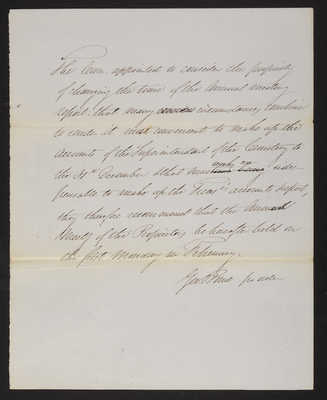 The Com. appointed to consider the propriety
of changing the time of the annual meeting
report: that many circumstances combine
to make it most convenient to make up the
accounts of the Superintendent of the Cemetery to
the 31st December & that
to make up the account & report,
they therefore recommend that the Annual
Meetg of the Proprietors be hereafter held on
the first Monday in February.
order